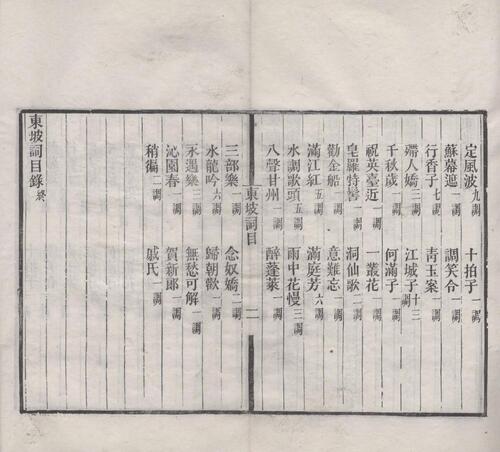 定風波九調　十拍子一調
蘇幕遮一調　調笑令一調
行香子七調　青玉案一調
殢人嬌三調　江城子十三調
千秋歲一調　何滿子一調
祝英臺近一調　一叢花一調
皇羅特髻一調　洞仙歌二調
勸金船一調　意難忘一調
滿江紅五調　滿庭芳六調
水調歌頭五調　雨中花慢三調
八聲甘州一調　醉蓬萊一調
東坡詞目　二
三部樂一調　念奴嬌二調
水龍吟六調　歸朝歡一調
永遇樂三調　無愁可解一調
沁園春一調　賀新郎一調
稍徧二調　戚氏一調
東坡詞目錄終